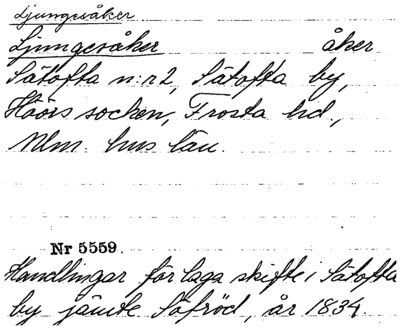 Ljungesåker
Ljungesåker åker
Sätofta n:r 2, Sätofta by,
Höörs socken, Frosta hd,
Mlm. hus län.
Nr 5559.
Handlingar för laga skifte i Sätofta
by jämte Söfröd, år 1834.